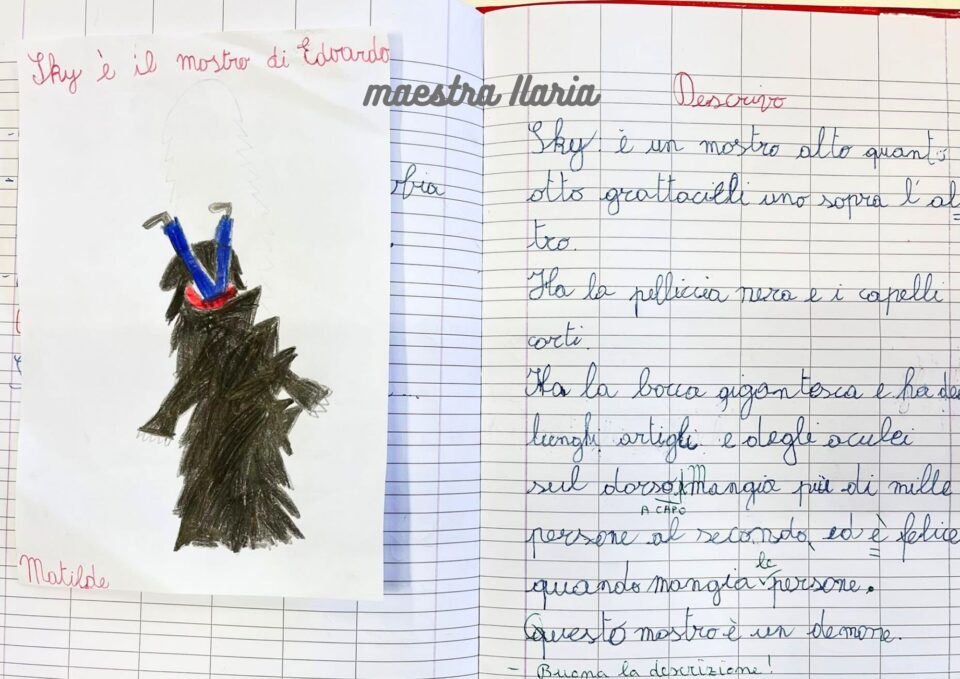 Sky è il mostro di Edoardo
maestra Ilaria
Matilde
Descrivo
Sky è un mostro alto quanto
otto grattacielli uno sopra l'al
tro.
Ha la pelliccia nera e i capelli
corti.
Ha la bocca gigantesca e ha de
lunghi artigli e degli aculei
sul dorso. Mangia più di mille
A CAPO
persone al secondo, ed è felice
quando mangia le persone.
Questo mostro è un demone.
- Buona la descrizione!